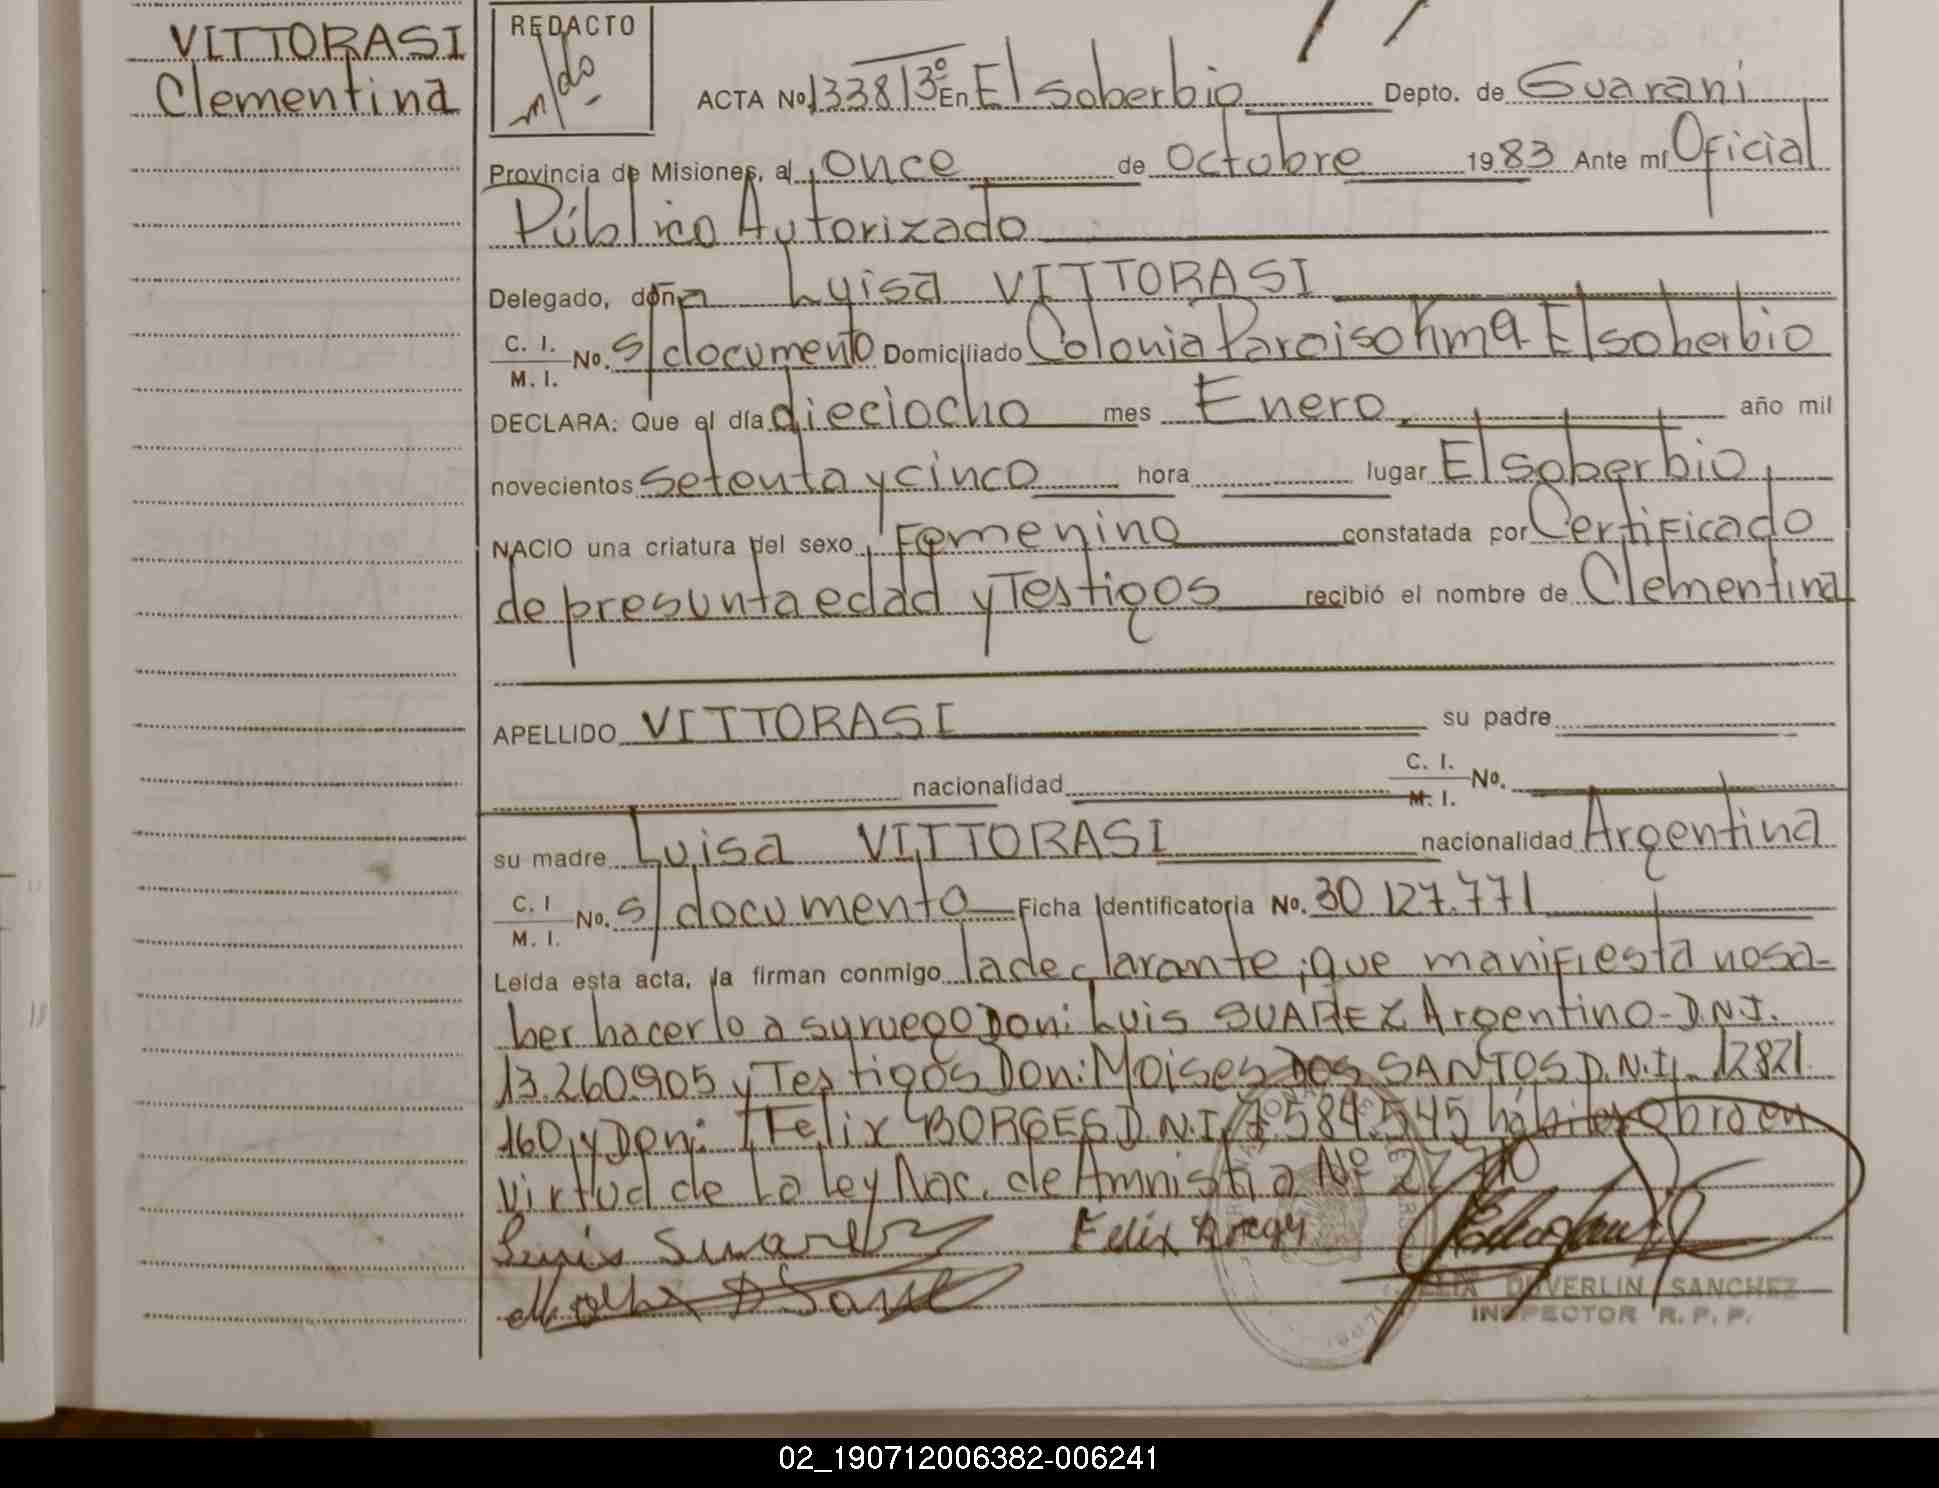 VITTORASI
Clementina
REDACTO
ACTA No 1338/3º En El Soberbio Depto. de Guarani
Provincia de Misiones, al once de Octubre 1983 Ante mí Oficial
Público Autorizado
Delegado, doña Luisa VITTORASI
C. I.
M. I. No. s/documento Domiciliado Colonia Paraiso Km 9 El Soberbio
DECLARA: Que el día dieciocho mes Enero año mil
novecientos setenta y cinco hora lugar El Soberbio
NACIO una criatura del sexo Femenino constatada por Certificado
de presunta edad y Testigos recibió el nombre de Clementina
APELLIDO VITTORASI su padre
nacionalidad C. I.
M. I. No.
su madre Luisa VITTORASI nacionalidad Argentina
C. I
M. I. No. s/documento Ficha Identificatoria No. 30 127.771
Leída esta acta, la firman conmigo la declarante, que manifiesta no sa-
ber hacerlo a su ruego Don: Luis SUAREZ Argentino - D.N.I.
13.260.905 y Testigos Don: Moises DOS SANTOS D.N.I. 12821
160, y Don: Felix BORGES D.N.I. 7.584.545 hábiles obro en
virtud de La Ley Nac. de Amnistia Nº
Luis Suarez Felix
SANCHEZ
INSPECTOR R. P. P.
02_190712006382-006241